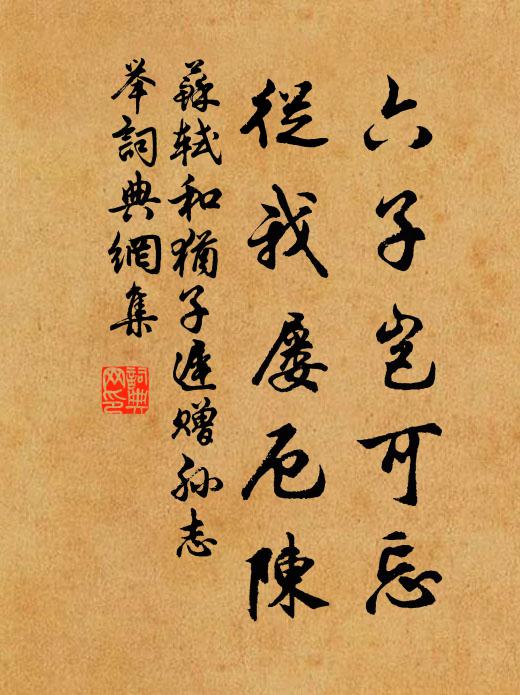 六子豈可忘
從我屢厄陳
蘇軾和猶子遲贈孫志
举詞典網集
詞典網印